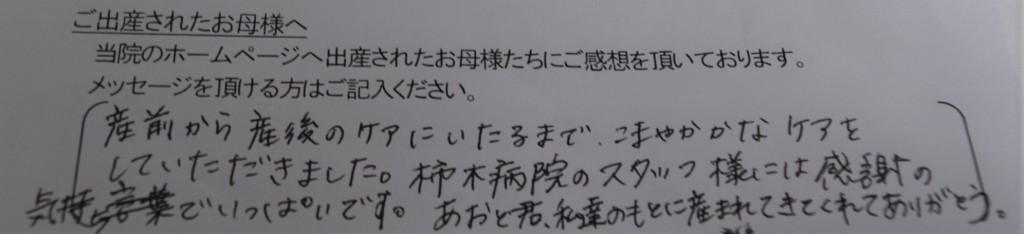 ご出産されたお母様へ
当院のホームページへ出産されたお母様たちにご感想を頂いております。
メッセージを頂ける方はご記入ください。
産前から産後のケアにいたるまで、こまやかかなケアを
していただだきました。柿木病院のスタッフ様には感謝の
気持ちでいっぱいです。あおと君、私達のもとに産まれてきてくれてありがとう。